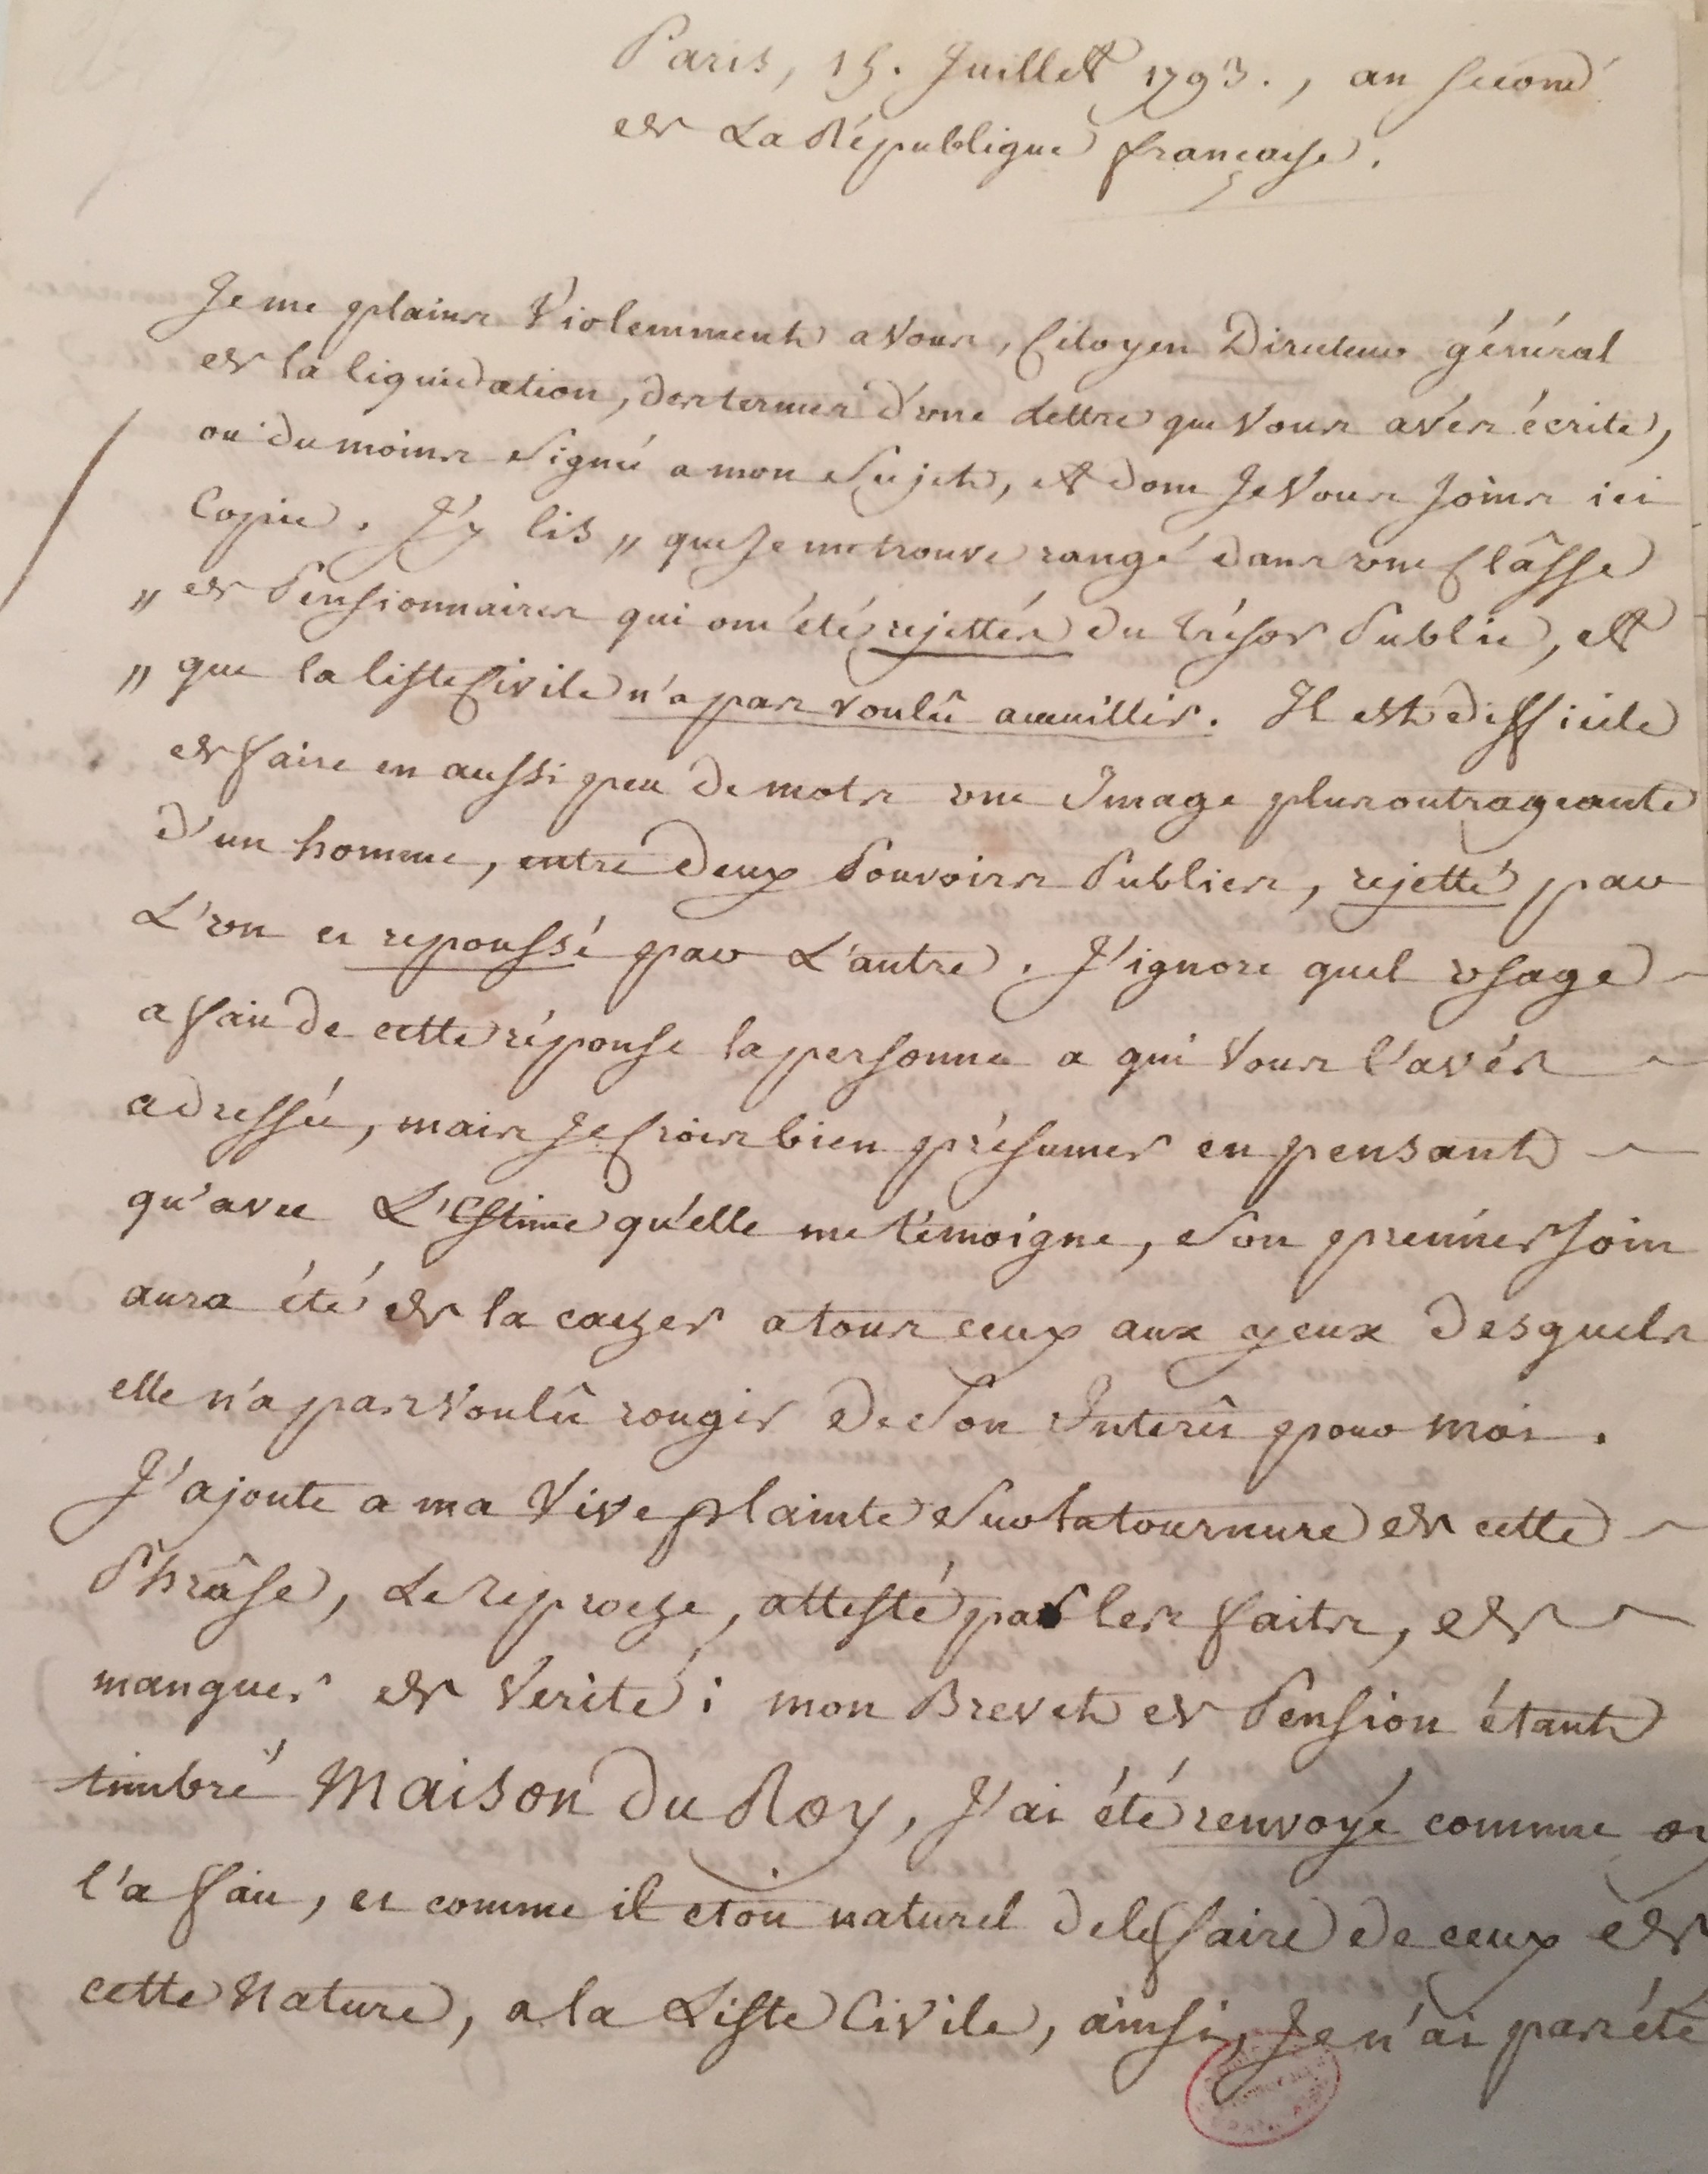 Paris, 15. Juillet 1793., an second
de La République françoise.
Je me plains Violemment a Vous, Citoyen Directeur général
de la liquidation, des termes d'une Lettre que Vous avés écrite,
ou du moins signée a mon Sujet, et dont Je Vous Joins ici
Copie. J'y lis „ que Je me trouve rangé dans une Clâsse
„ de Pensionnaires qui ont été rejettés du trésor Public, et
„ que la liste Civile n'a pas voulû accueillir. Il est difficile
de faire en aussi peu de mots une Image plus outrageante
d'un homme, entre deux Pouvoirs Publics, rejetté par
L'un et repoussé par L'autre. J'ignore quel usage
a fait de cette réponse la personne a qui Vous l'avés
adressée, mais Je Crois bien présumer en pensant
qu'avec L'Estime qu'elle me témoigne, Son premier Soin
aura été de la cacher a tous ceux aux yeux desquels
elle n'a pas Voulû rougir de Son Interêt pour moi.
J'ajoute a ma Vive plainte Sur la tournure de cette
Phrâse, Le reproche, attesté par les faits, de
manquer de Verité; mon Brevet de Pension étant
timbré Maison du Roy, J'ai été renvoyé comme on
l'a fait, et comme il etoit naturel de le faire de ceux de
cette Nature, a la Liste Civile, ainsi, Je n'ai pas été